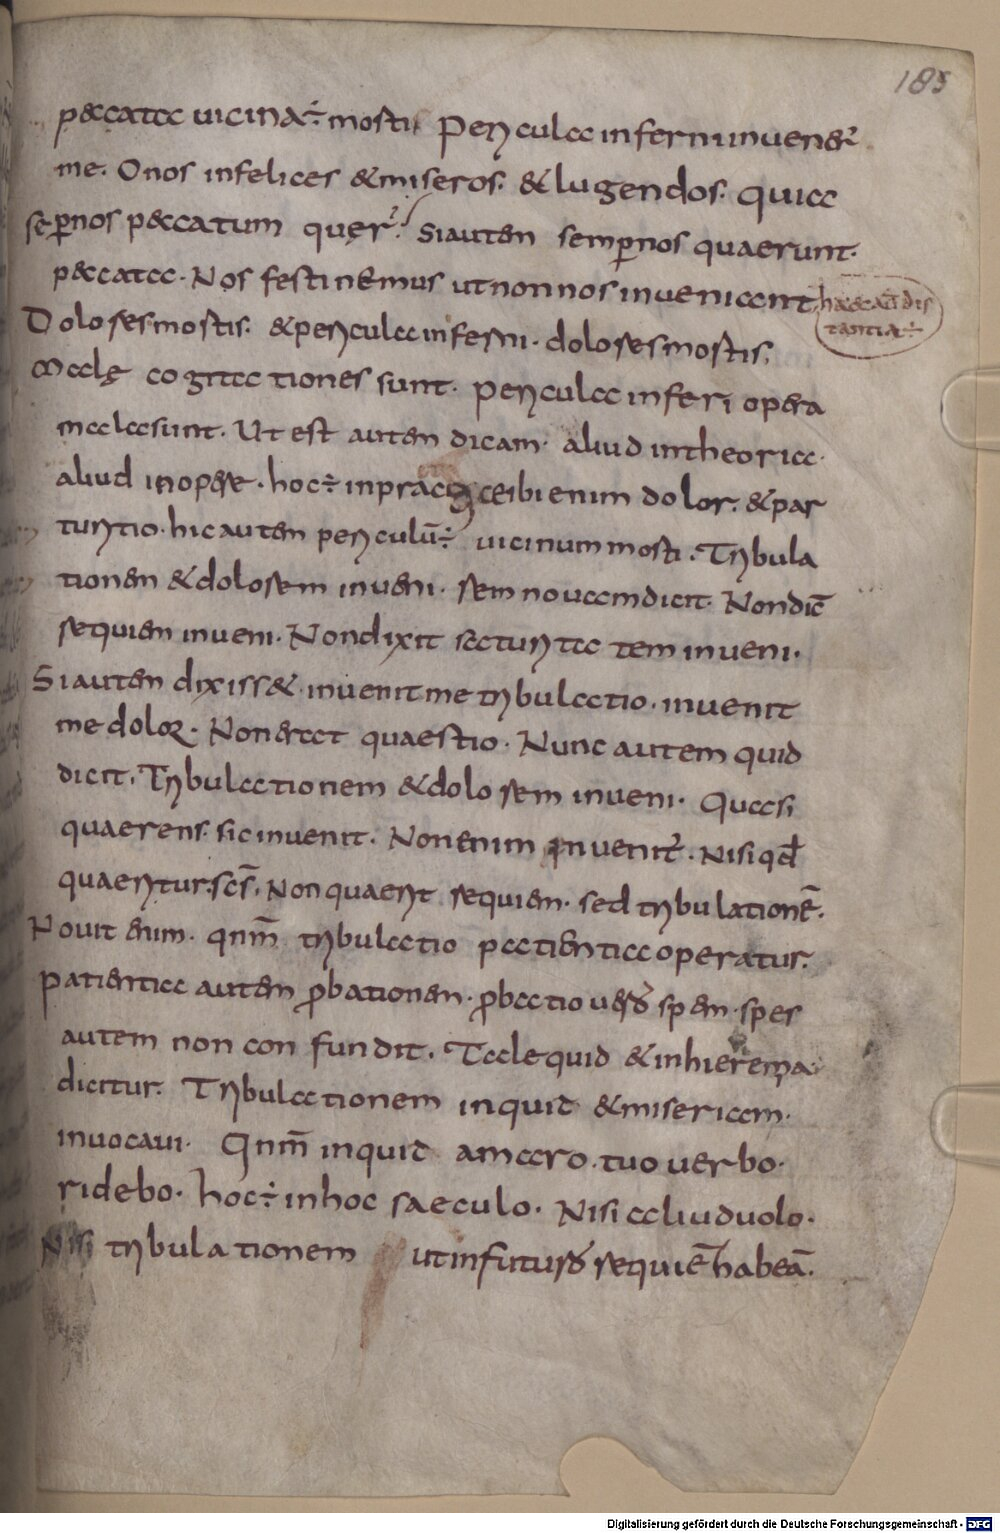 185
peccata uicina ÷ morti. Pericula inferni inuener̄
me. O nos infelices & miseros. & lugendos. quia
sēp nos peccatum quęr̄. Si autem semp nos quaerunt
peccata. Nos festinemus ut non nos inueniant
haec aut̄ dis
tantia ÷
Dolores mortis. & pericula inferni. dolores mortis.
Malę cogitationes sunt. Pericula inferi opera
mala sunt. Ut est autem dicam. aliud in theorica.
aliud in opere. hoc ÷ in practica ibi enim dolor. & par
turitio. hic autem periculū ÷ uicinum morti. Tribula
tionem & dolorem inueni. rem nouam dicit. Non dic̄
requiem inueni. Non dixit saturitatem inueni.
Si autem dixiss&. inuenit me tribulatio. inuenit
me dolor. Non erat quaestio. Nunc autem quid
dicit. Tribulationem & dolorem inueni. Quasi
quaerens. sic inuenit. Non enim inuenit̄. Nisi qđ
quaeritur. scs̄. Non quaerit requiem. sed tribulationē.
Nouit enim. qnm̄ tribulatio patientia operatur.
Patientia autem pbationem. pbatio uero spem. spes
autem non confundit. Tale quid & in hieremia
dicitur. Tribulationem inquid & miseriam.
inuocaui. Qnm̄ inquid amaro. tuo uerbo.
ridebo. hoc ÷ in hoc saeculo. Nisi aliud uolo.
Nisi tribulationem ut in futuro requiē habeā.
Digitalisierung gefördert durch die Deutsche Forschungsgemeinschaft - DFG